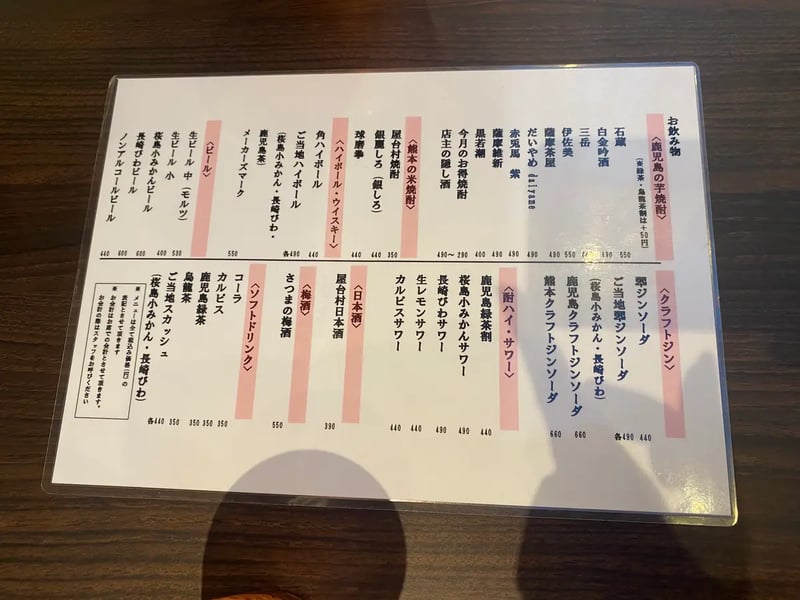 お飲み物
〈鹿児島の芋焼酎〉
(※緑茶・烏龍茶割は+50円)
石蔵 550
白金吟酒 490
三岳
伊佐美 550
薩摩茶屋 490
だいやめ daiyame 490
赤兎馬 紫 490
薩摩維新 490
黒若潮 400
今月のお得焼酎 290
店主の隠し酒 490〜
〈熊本の米焼酎〉
屋台村焼酎 350
銀麗しろ (銀しろ) 440
球磨拳 440
〈ハイボール・ウイスキー〉
角ハイボール 440
ご当地ハイボール 各490
(桜島小みかん・長崎びわ・
鹿児島茶)
メーカーズマーク 550
〈ビール〉
生ビール 中 (モルツ) 530
生ビール 小 400
桜島小みかんビール 600
長崎びわビール 600
ノンアルコールビール 440
〈クラフトジン〉
翠ジンソーダ 440
ご当地翠ジンソーダ 各490
(桜島小みかん・長崎びわ)
鹿児島クラフトジンソーダ 660
熊本クラフトジンソーダ 660
〈酎ハイ・サワー〉
鹿児島緑茶割 440
桜島小みかんサワー 490
長崎びわサワー 490
生レモンサワー 440
カルピスサワー 440
〈日本酒〉
屋台村日本酒 390
〈梅酒〉
さつまの梅酒 550
〈ソフトドリンク〉
コーラ 350
カルピス 350
鹿児島緑茶 350
烏龍茶 350
ご当地スカッシュ
(桜島小みかん・長崎びわ) 各440
※ メニューは全て税込み価格(円)の
表記とさせて頂きます
※ お会計はお席での会計とさせて頂きます。
お会計の際はスタッフをお呼びください